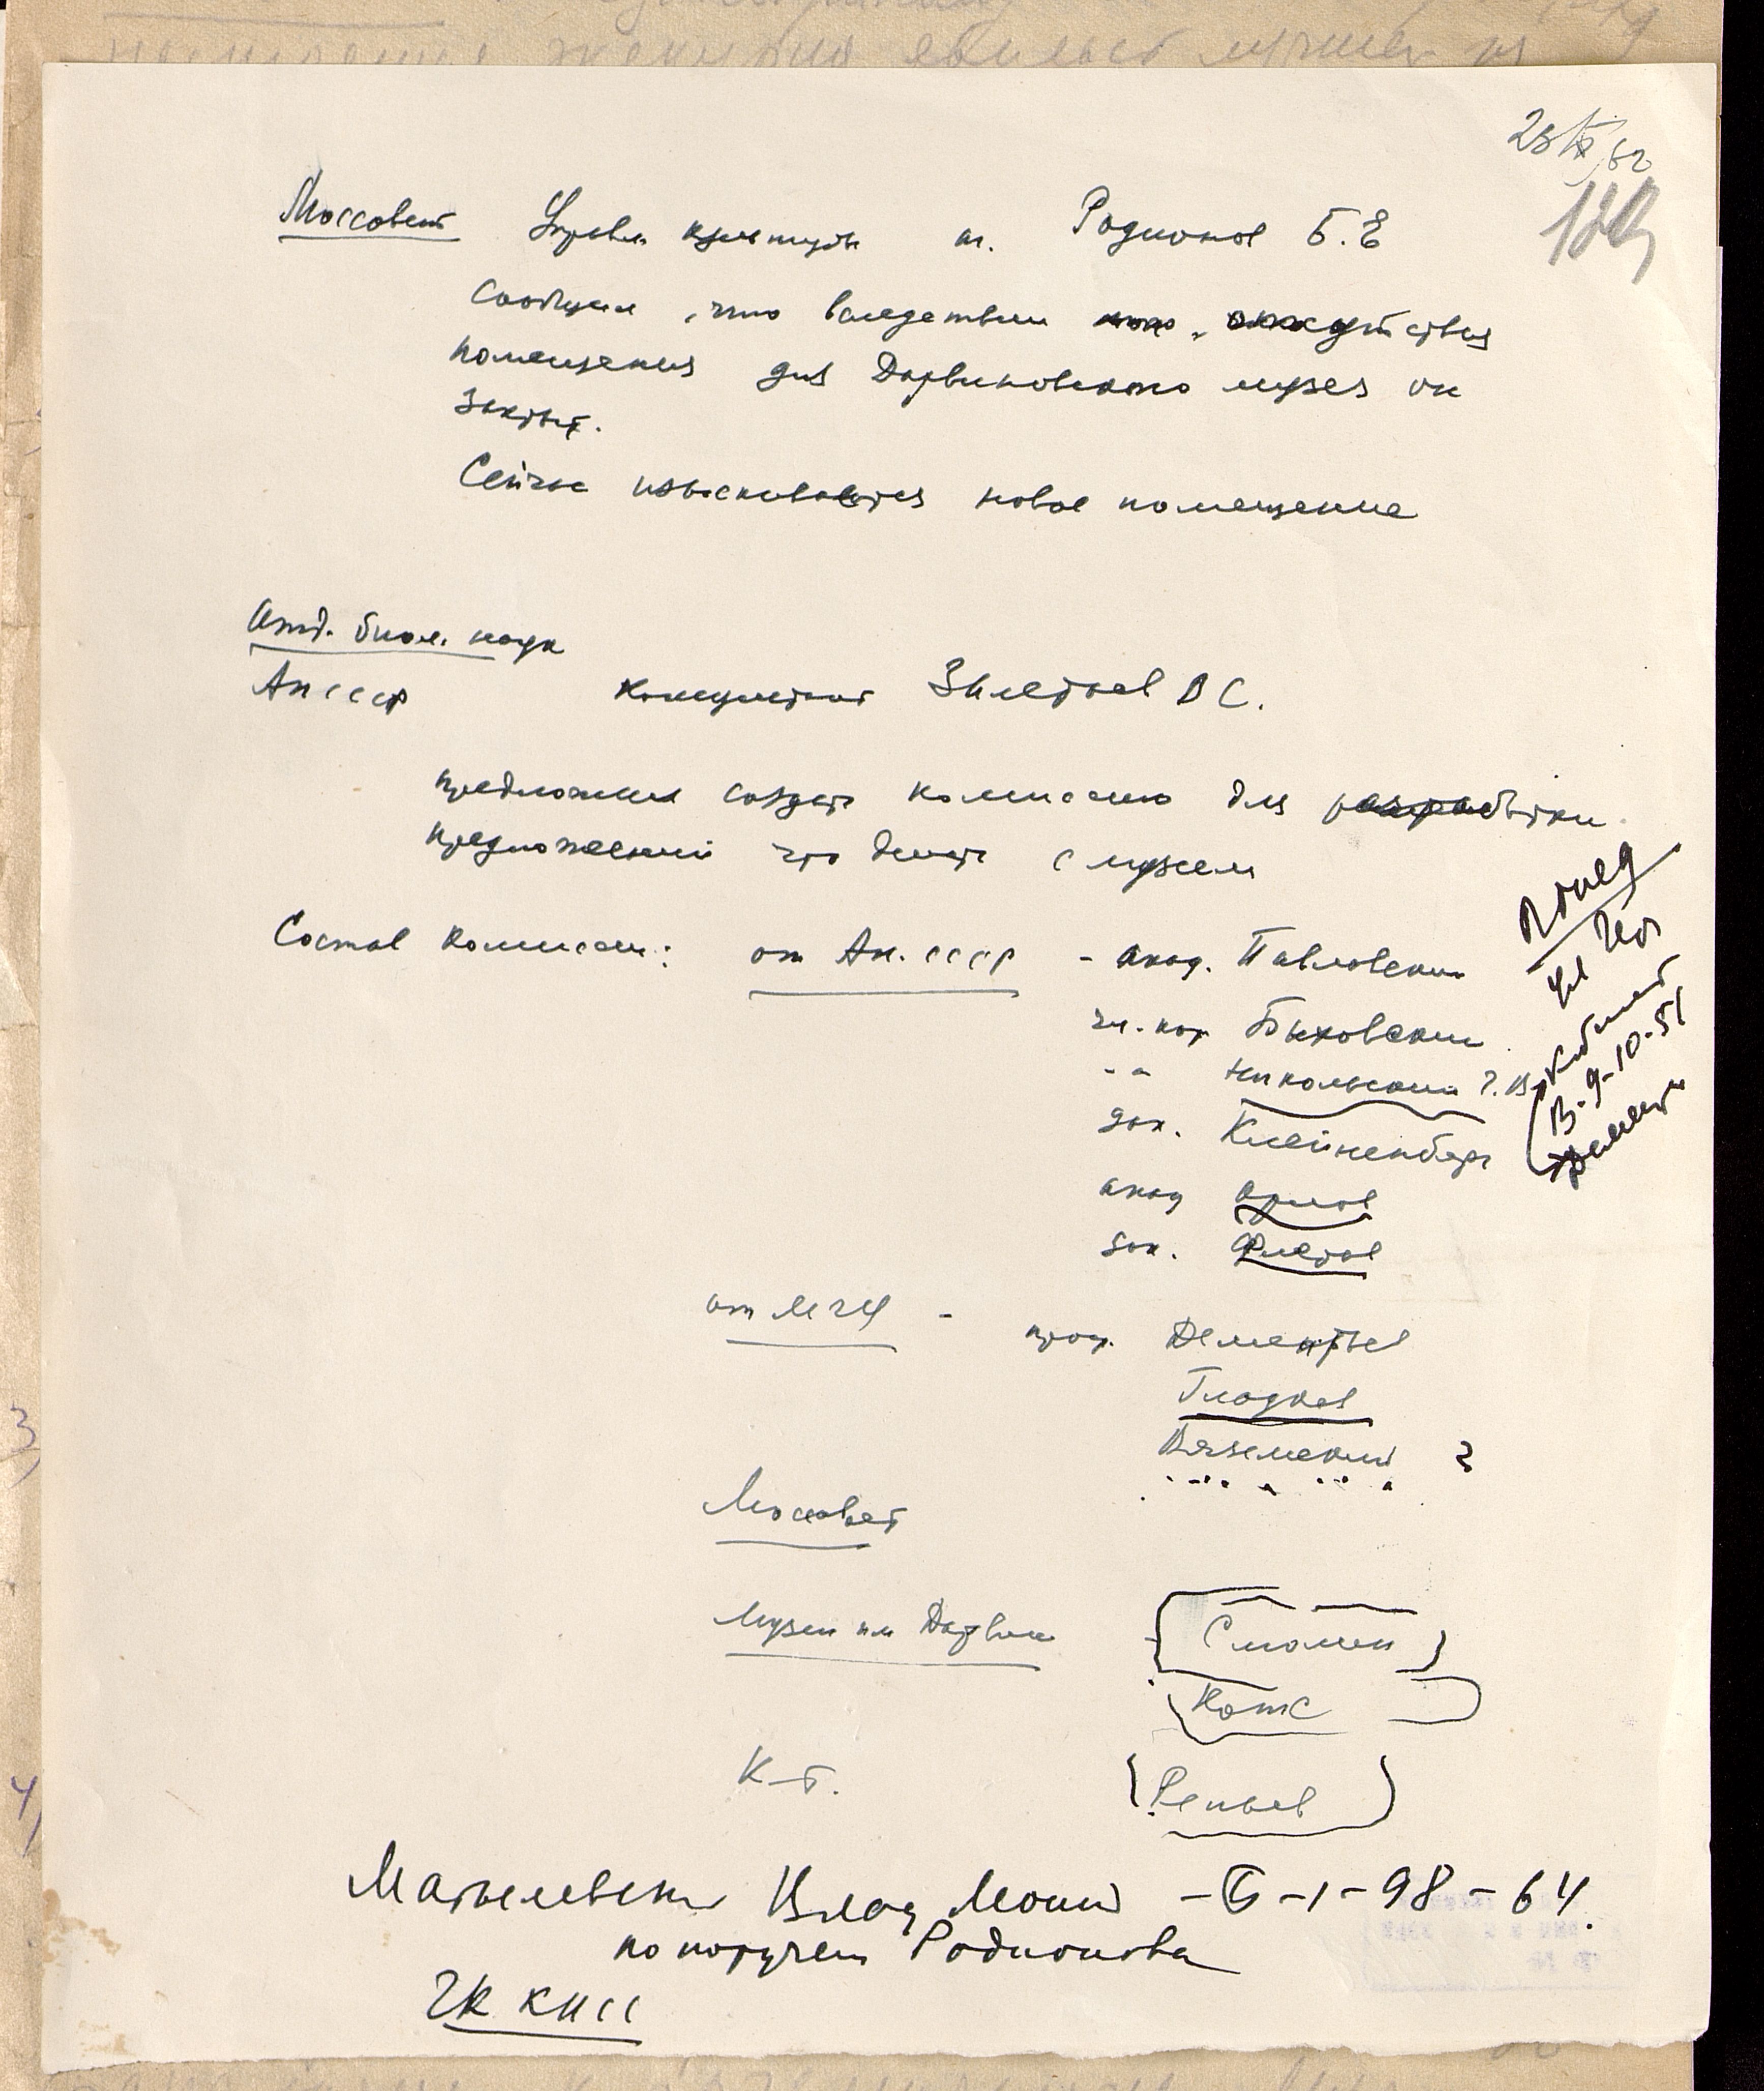 129
Моссовет Управл культуры т. Родионов Б.Е
Сообщил, что вследствии отсутствия
помещения для Дарвиновского музея он
закрыт.
Сейчас изыскивается новое помещение
Отд. биол. наук
Ан СССР Консультант ВС.
предложил создать комиссию для разработки
предложений что делать с музеем
Состав комиссии: от Ан. СССР - акад. Павловский
чл. кор Быховский
-"- Никольский Г.В.
док. Клейненберг
акад Орлов
док. Флеров
от МГУ - проф. Дементьев
Гладков
Вяземский ?
Моссовет
Музей им Дарвина Смолин
Котс
К-т. Репьев
В-9-10-51
Влад Моис - Б-1-98-64.
по поручен Родионова
ЦК КПСС